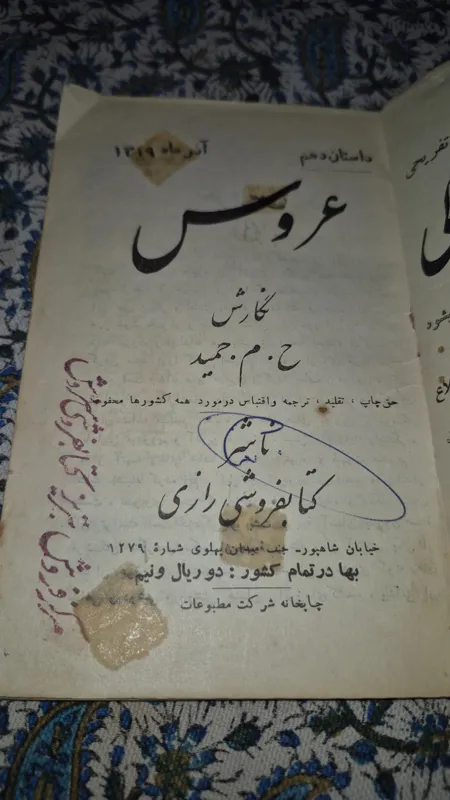 داستان دهم
آذر ماه ۱۳۱۹
عروس
نگارش
ح . م . حمید
حق چاپ ، تقلید ، ترجمه واقتباس درمورد همه کشورها محفوظ
ناشر
کتابفروشی رازی
خیابان شاهپور- جنب میدان پهلوی شمارهٔ ۱۲۷۹
بها در تمام کشور : دو ریال ونیم
چاپخانه شرکت مطبوعات
تفریحی